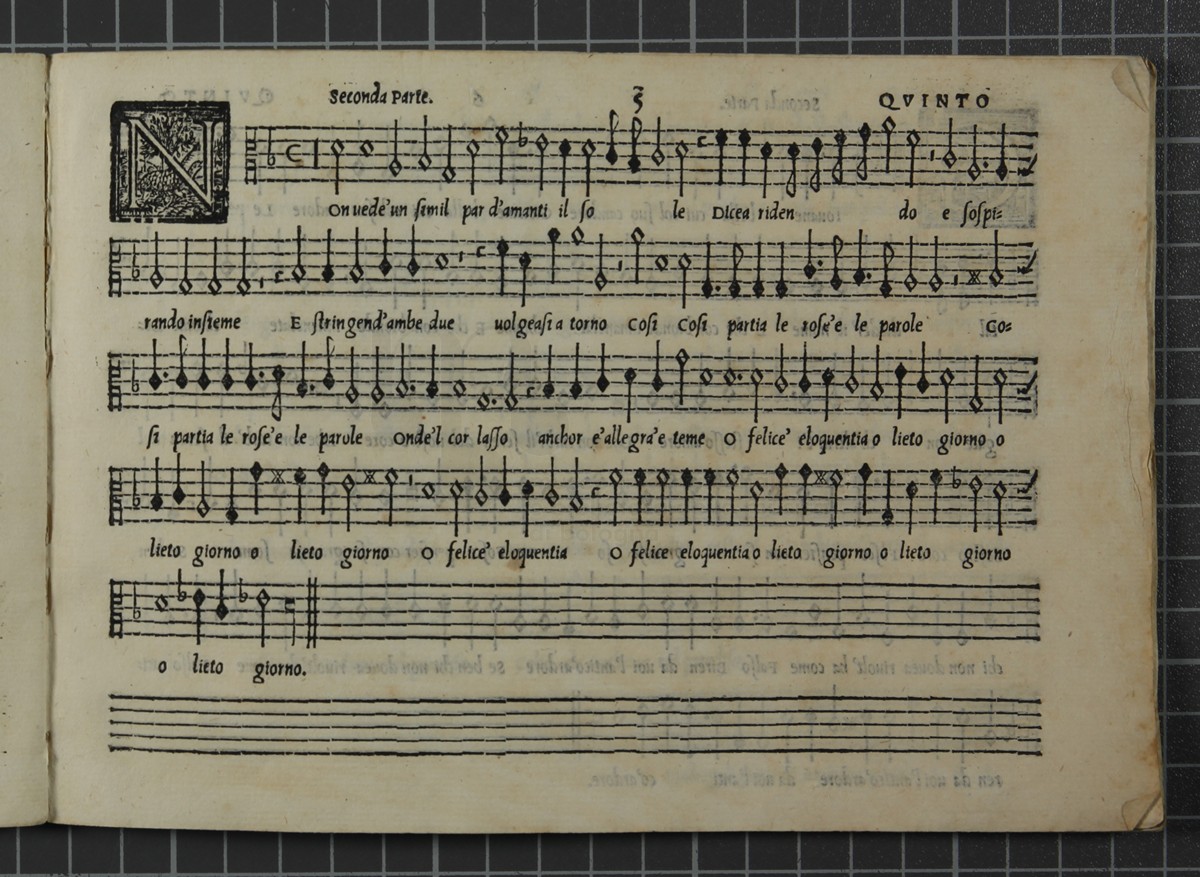 Seconda Parte. 5 QVINTO
N On uede'un simil par d'amanti il so le Dicea riden do e sospi=
rando insieme E stringend'ambe due uolgeasi a torno Cosi Cosi partia le rose'e le parole Co=
si partia le rose'e le parole Onde'l cor lasso anchor e'allegra'e teme O felice' eloquentia o lieto giorno o
lieto giorno o lieto giorno O felice' eloquentia O felice eloquentia o lieto giorno o lieto giorno
o lieto giorno.